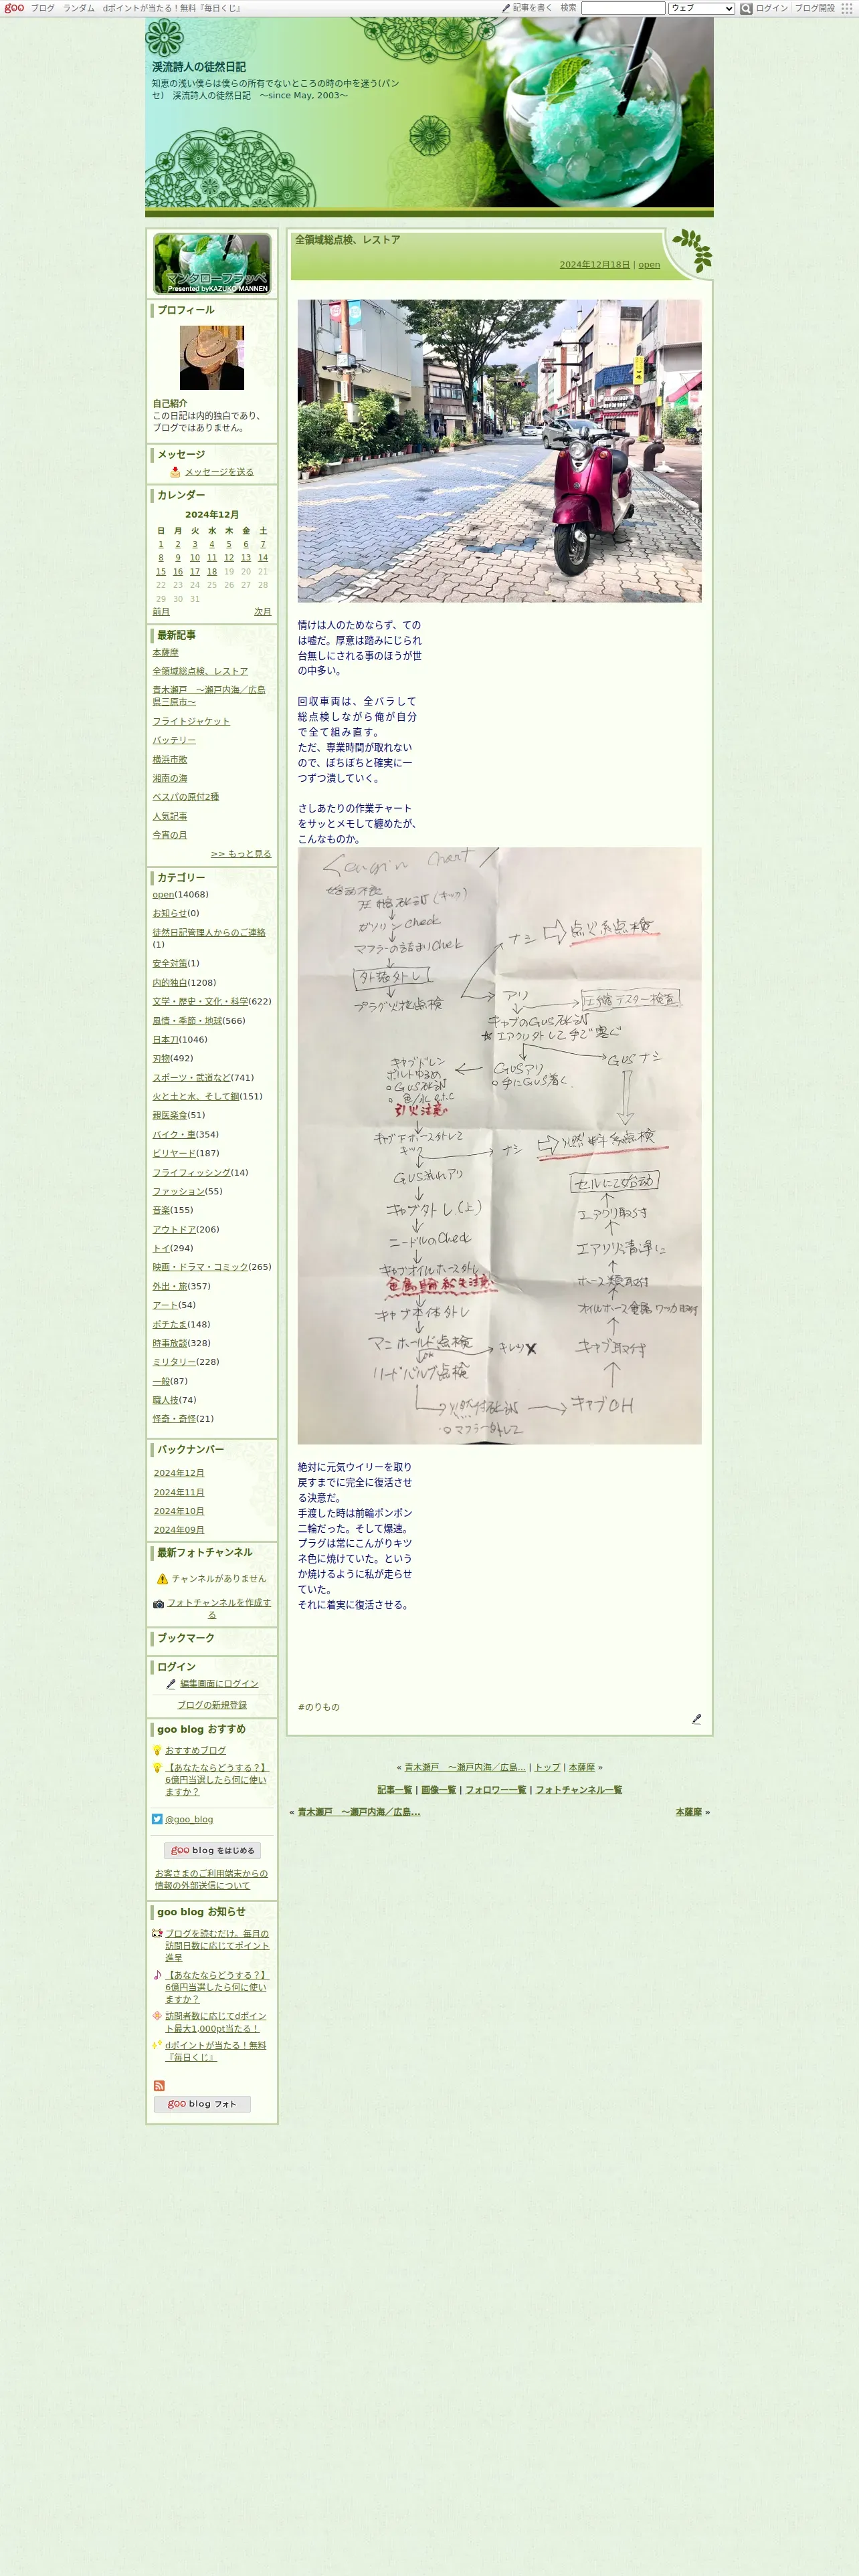 goo ブログ ランダム dポイントが当たる！無料『毎日くじ』 記事を書く 検索 ウェブ ログイン ブログ開設
渓流詩人の徒然日記
知恵の浅い僕らは僕らの所有でないところの時の中を迷う(パン
セ)　渓流詩人の徒然日記　～since May, 2003～
マンタローフラッペ
Presented byKAZUKO MANNEN
プロフィール
自己紹介
この日記は内的独白であり、
ブログではありません。
メッセージ
メッセージを送る
カレンダー
2024年12月
日 月 火 水 木 金 土
1 2 3 4 5 6 7
8 9 10 11 12 13 14
15 16 17 18 19 20 21
22 23 24 25 26 27 28
29 30 31
前月 次月
最新記事
本薩摩
全領域総点検、レストア
青木瀬戸　～瀬戸内海／広島
県三原市～
フライトジャケット
バッテリー
横浜市歌
湘南の海
ベスパの原付2種
人気記事
今宵の月
>> もっと見る
カテゴリー
open(14068)
お知らせ(0)
徒然日記管理人からのご連絡
(1)
安全対策(1)
内的独白(1208)
文学・歴史・文化・科学(622)
風情・季節・地球(566)
日本刀(1046)
刃物(492)
スポーツ・武道など(741)
火と土と水、そして鋼(151)
親医楽食(51)
バイク・車(354)
ビリヤード(187)
フライフィッシング(14)
ファッション(55)
音楽(155)
アウトドア(206)
トイ(294)
映画・ドラマ・コミック(265)
外出・旅(357)
アート(54)
ポチたま(148)
時事放談(328)
ミリタリー(228)
一般(87)
職人技(74)
怪奇・奇怪(21)
バックナンバー
2024年12月
2024年11月
2024年10月
2024年09月
最新フォトチャンネル
チャンネルがありません
フォトチャンネルを作成す
る
ブックマーク
ログイン
編集画面にログイン
ブログの新規登録
goo blog おすすめ
おすすめブログ
【あなたならどうする？】
6億円当選したら何に使い
ますか？
@goo_blog
goo blog をはじめる
お客さまのご利用端末からの
情報の外部送信について
goo blog お知らせ
ブログを読むだけ。毎月の
訪問日数に応じてポイント
進呈
【あなたならどうする？】
6億円当選したら何に使い
ますか？
訪問者数に応じてdポイン
ト最大1,000pt当たる！
dポイントが当たる！無料
『毎日くじ』
goo blog フォト
全領域総点検、レストア
2024年12月18日 | open
情けは人のためならず、ての
は嘘だ。厚意は踏みにじられ
台無しにされる事のほうが世
の中多い。
回収車両は、全バラして
総点検しながら俺が自分
で全て組み直す。
ただ、専業時間が取れない
ので、ぼちぼちと確実に一
つずつ潰していく。
さしあたりの作業チャート
をサッとメモして纏めたが、
こんなものか。
ガソリン Check
外装外し
プラグ火花点検
ナシ
点火系点検
アリ
圧縮テスター検査
GUSナシ
GUSアリ
引火注意
ナシ
燃料系点検
セルにて始動
キャブ外し(上)
ニードルのCheck
キャブ本体外し
マニホールド点検
リードバルブ点検
キャブ取付
キャブOH
絶対に元気ウイリーを取り
戻すまでに完全に復活させ
る決意だ。
手渡した時は前輪ポンポン
二輪だった。そして爆速。
プラグは常にこんがりキツ
ネ色に焼けていた。という
か焼けるように私が走らせ
ていた。
それに着実に復活させる。
#のりもの
« 青木瀬戸　～瀬戸内海／広島... | トップ | 本薩摩 »
記事一覧 | 画像一覧 | フォロワー一覧 | フォトチャンネル一覧
« 青木瀬戸　～瀬戸内海／広島...
本薩摩 »